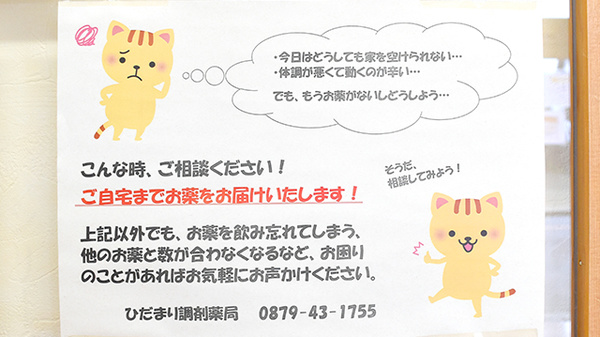 ・今日はどうしても家を空けられない…
・体調が悪くて動くのが辛い…
でも、もうお薬がないしどうしよう…
こんな時、ご相談ください！
ご自宅までお薬をお届けいたします！
そうだ、
相談してみよう！
上記以外でも、お薬を飲み忘れてしまう、
他のお薬と数が合わなくなるなど、お困り
のことがあればお気軽にお声かけください。
ひだまり調剤薬局　0879-43-1755